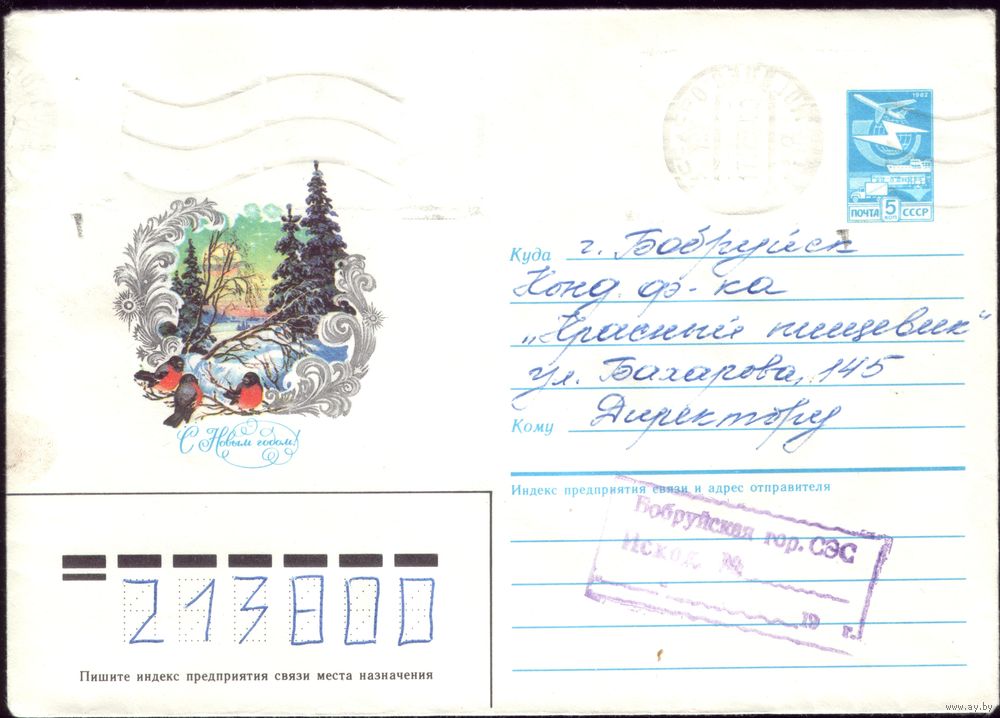 1982
ПОЧТА 5 КОП СССР
Куда г. Бобруйск
Конд. ф-ка
„Красный пищевик"
ул. Бахарова, 145
Кому Директору
С Новым годом!
Индекс предприятия связи и адрес отправителя
Бобруйская гор. СЭС
Исход. №
19 г.
213800
Пишите индекс предприятия связи места назначения
www.ay.by